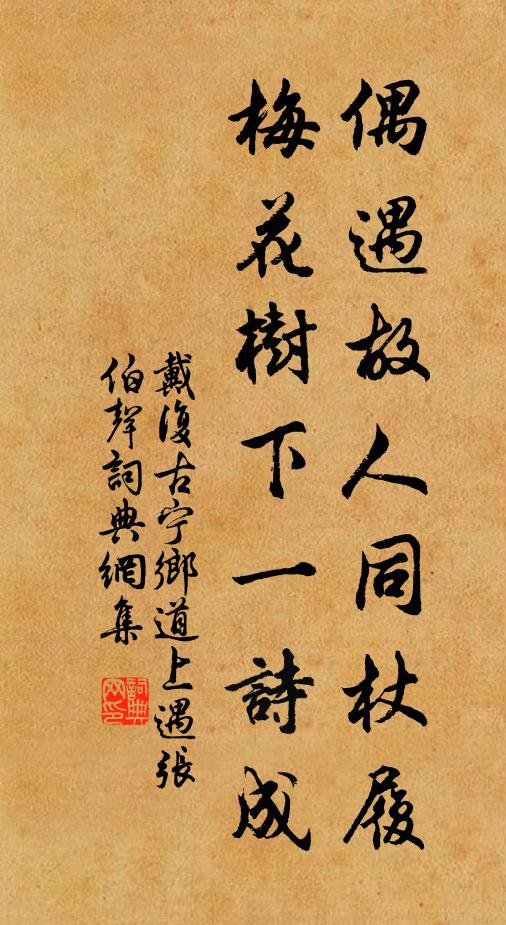 偶遇故人同杖履
梅花樹下一詩成
戴復古宁鄉道上遇張
伯聲詞典網集
詞典
网印